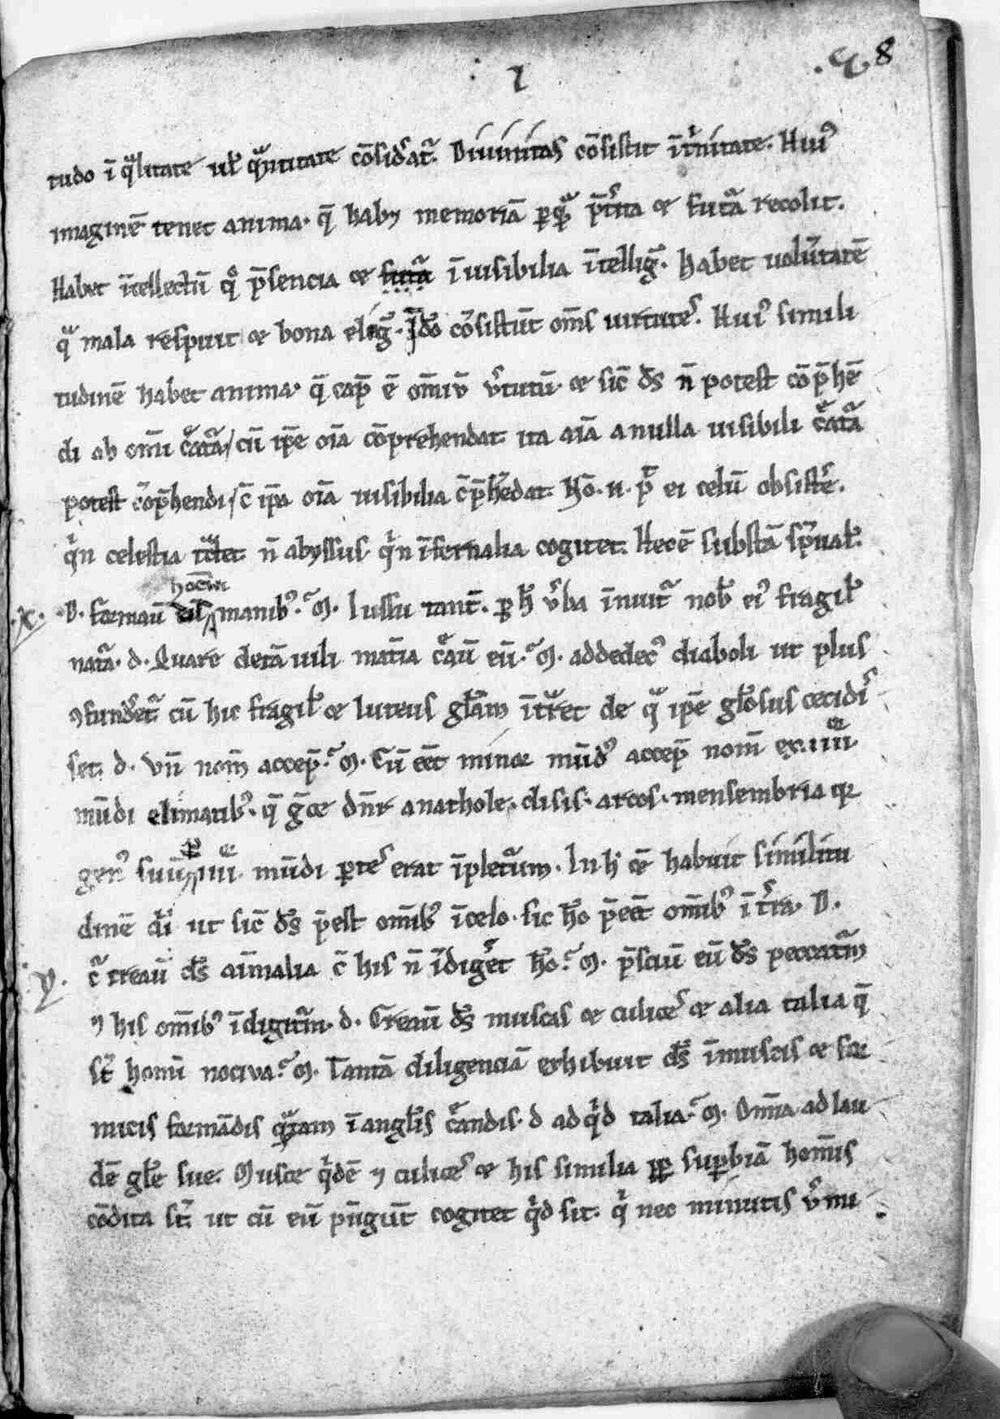 I 8
tudo ī qͣlitate ul' qͣntitate cōsid'at᷑. Diuinitas cōsistit ī t'nitate. Hui⁹
imaginē tenet anima. q̄ habꝫ memoriā ꝑ quā p̄t'ita ⁊ futᷓa recolit.
Habet ītellectū qͦ p̄sencia ⁊ futᷓa īuisibilia ītellig᷑. habet uolūtatē
qͣ mala respuit ⁊ bona elig᷑. Ī dō cōsistūt om̄s uirtutes. Hui⁹ simili
tudinē habet anima. q̄ cap̄ ē om̄iū v'tutū. ⁊ sic̄ ds̄ n̄ potest cōp̄hē
di ab om̄i c̄atᷓa, cū ip̄e oīa cōprehendat. ita aīa a nulla uisibili c̄atᷓa
potest cōp̄hendi, c̄ ip̄a oīa uisibilia c̄p̄hēdat. Nō .n. p̄t ei celū obsist'e.
qͥn celestia t̄ctet. n̄ abyssus qͥn īfernalia cogitet. Hec ē substā sp̄ual'.
.x. D. formauit eū manib⁹. M. Iussu tant̄. ꝑ h̄ v'ba īnuit᷑ nob̄ ei⁹ fragil'
natᷓa. d. Quare de tā uili mat̄ia c̄auit eū. M. ad dedec⁹ diaboli ut plus
ꝯfund'et᷑ cū hic fragil' ⁊ luteus gl'am īt'ret de qͣ ip̄e gl'osus cecidis
set. d. vn̄ nom̄ accep̄. M. Cū eēt minor mūd⁹ accep̄ nom̄ ex .iiii.
mūdi climatib⁹. q̄ g̃ce dn̄r anathole. disis. arctos. mensembria qr
gen⁹ suū .iiii. mūdi ꝑtes erat īpletuꝝ. In h° et̄ habuit similitu
dinē di' ut sic̄ ds̄ p̄est om̄ib⁹ ī celo. sic hō p̄eēt om̄ib⁹ ī t'ra. D.
.y. Cͬ creauit ds̄ aīmalia c̄ his n̄ īdig'et hō. M. p̄sciuit eū ds̄ peccatuꝝ
⁊ his om̄ib⁹ īdigituꝝ. d. Creauit ds̄ muscas ⁊ culices ⁊ alia talia q̄
st̄ homī nociua. M. Tantā diligenciā exhibuit ds̄ ī muscis ⁊ for
micis formādis qͣtam ī angl'is c̄andis. d ad qͥd talia. M. Om̄ia ad lau
dē gl'e sue. Musce qͥdē ⁊ culices ⁊ his similia ꝓpt sup̄biā hom̄is
cōdita st̄ ut cū eū pūgūt cogitet qͥd sit. qͥ nec minutis v'mi